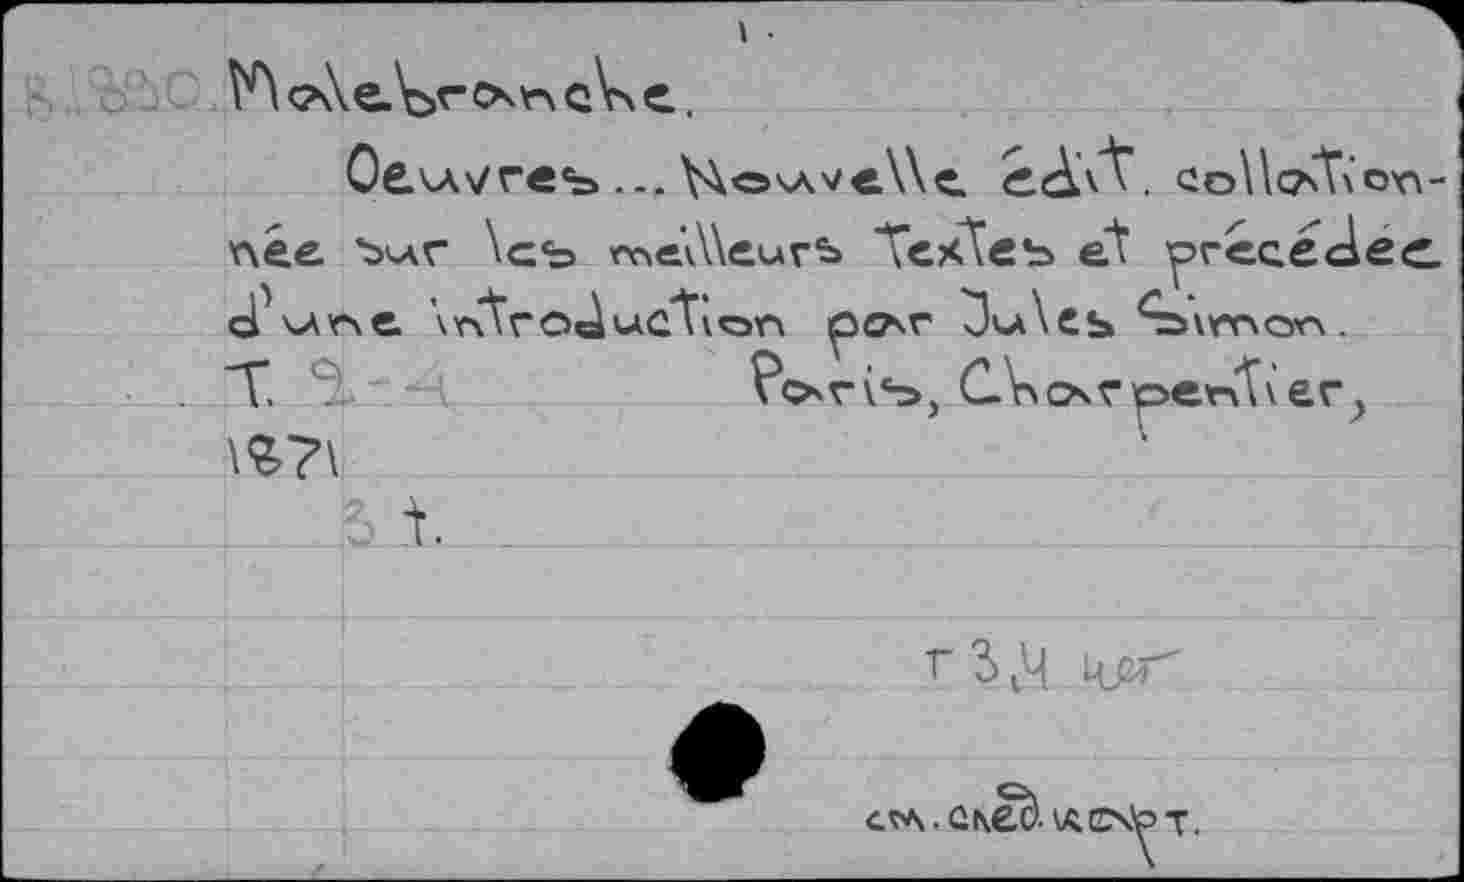 1.
Malebranche.
Oeuvres... Nouvelle édit. collation-
née sur les meilleurs textes et précédée
d'une introduction par Jules Simon.
T. Paris, Charpentier,
1871
3 t.
см. след. карт.